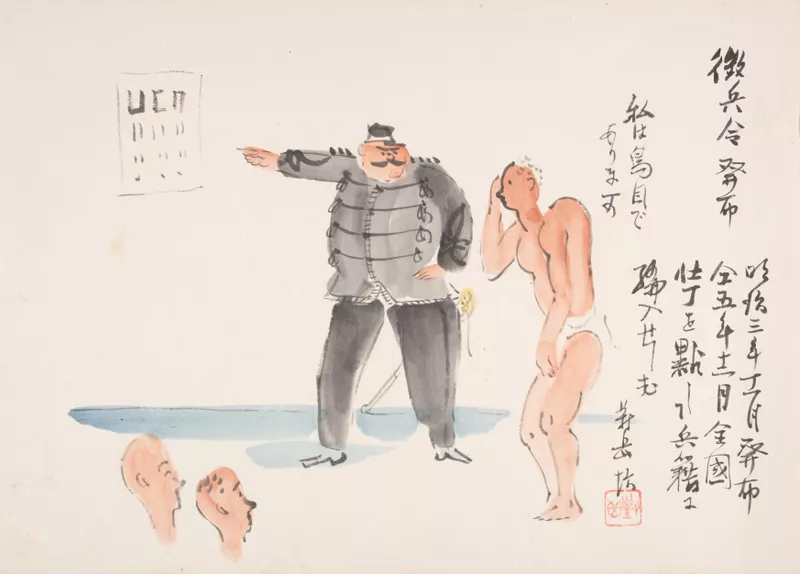 徴兵令発布
明治三年十一月発布
仝五年十一月全國
壮丁を點して兵籍に
編入せしむ
私は鳥目で
あります